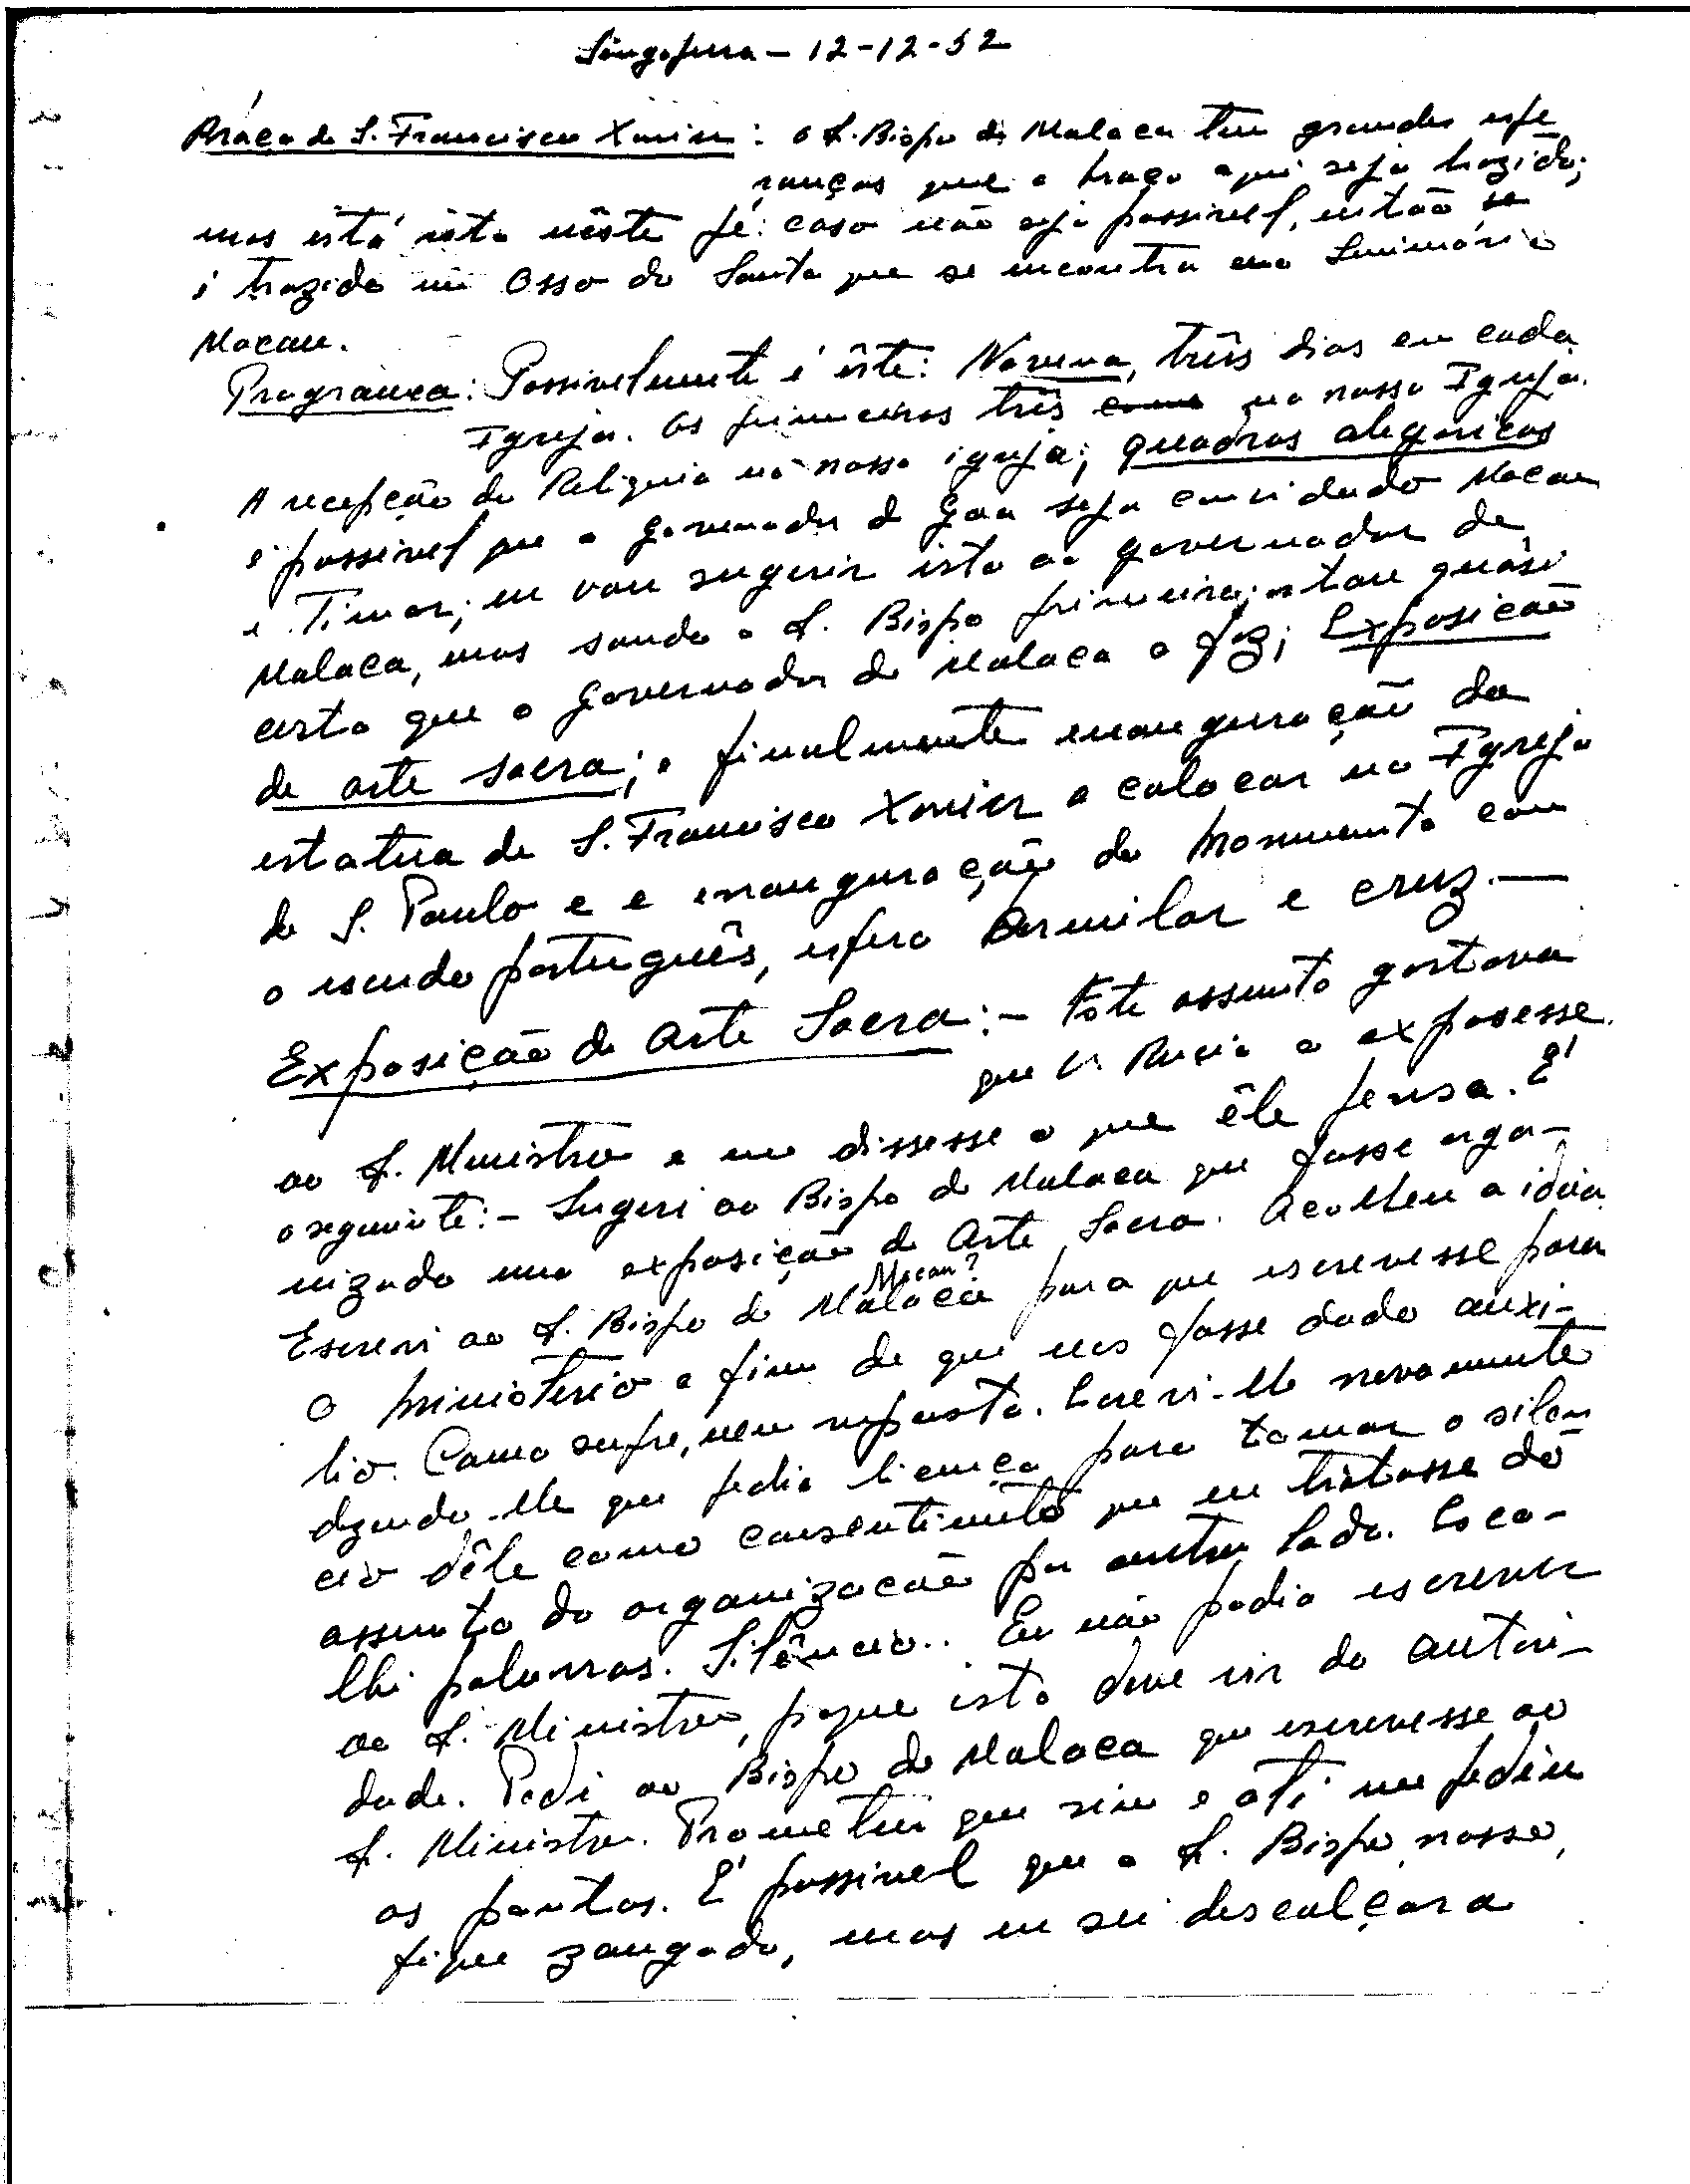 Singapura - 12-12-52
Braço de S. Francisco Xavier: o S. Bispo de Malaca tem grandes espe
ranças que o braço aqui seja trazido;
mas está isto nêste pé: caso não seja possivel, então se
é trazido um Osso do Santo que se encontra no Seminário
Macau.
Programa: Possivelmente é êste: Novena, três dias em cada
Igreja. Os primeiros três na nossa Igreja.
A recepção da Reliquia na nossa igreja; quadros alegoricos
é possivel que o governador de Goa seja convidado Macau
e Timor; eu vou sugerir isto ao governador de
Malaca, mas sondo o S. Bispo primeiro; estou quási
certo que o governador de Malaca o faz; Exposição
de arte sacra; e finalmente inauguração da
estatua de S. Francisco Xavier a colocar na Igreja
de S. Paulo e e inauguração do monumento com
o escudo português, esfera Armilar e cruz. —
Exposição de Arte Sacra: - Este assunto gostava
que V. Rucia o expozesse
ao S. Ministro e me dissesse o que êle pensa. É
o seguinte: - Sugeri ao Bispo de Malaca que fosse orga-
nizada uma exposição de Arte Sacra. Acolheu a ideia.
Macau?
Escrevi ao S. Bispo de Malaca para que escrevesse para
o ministerio a fim de que nos fosse dado auxi-
lio. Como sempre, nem resposta. Escrevi-lhe novamente
dizendo-lhe que pedia licença para tomar o silen
cio dêle como consentimento que eu tratasse do
assunto da organização por outro lado. Esco-
lhi palavras. Silêncio.. Eu não podia escrever
ao S. Ministro, porque isto deve vir da autori-
dade. Pedi ao Bispo de Malaca que escrevesse ao
S. Ministro. Prometeu que sim e até me pediu
os pontos. É possivel que o S. Bispo nosso,
fique zangado, mas eu sei descalçar a